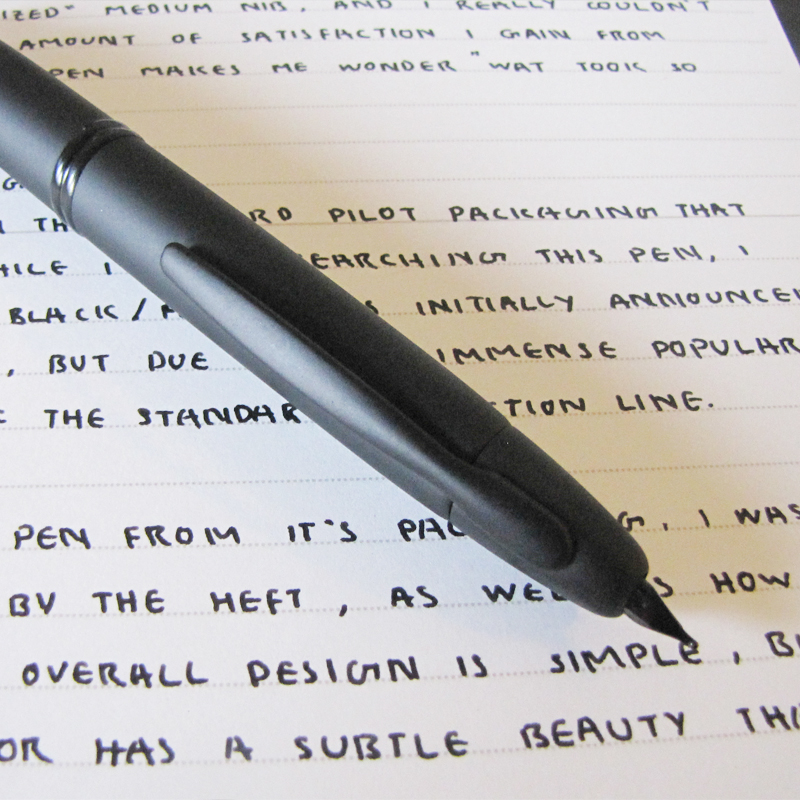 IZED" MEDIUM NIB, AND I REALLY COULDN'T
AMOUNT OF SATISFACTION I GAIN FROM
PEN MAKES ME WONDER "WAT TOOK SO
G.
TH RD PILOT PACKAGING THAT
HILE I EARCHING THIS PEN, I
BLACK / S INITIALLY ANNOUNCE
, BUT DUE IMMENSE POPULAR
THE STANDAR TION LINE.
PEN FROM IT'S PAC G, I WAS
BY THE HEFT, AS WEL S HOW
OVERALL DESIGN IS SIMPLE, B
OR HAS A SUBTLE BEAUTY TH